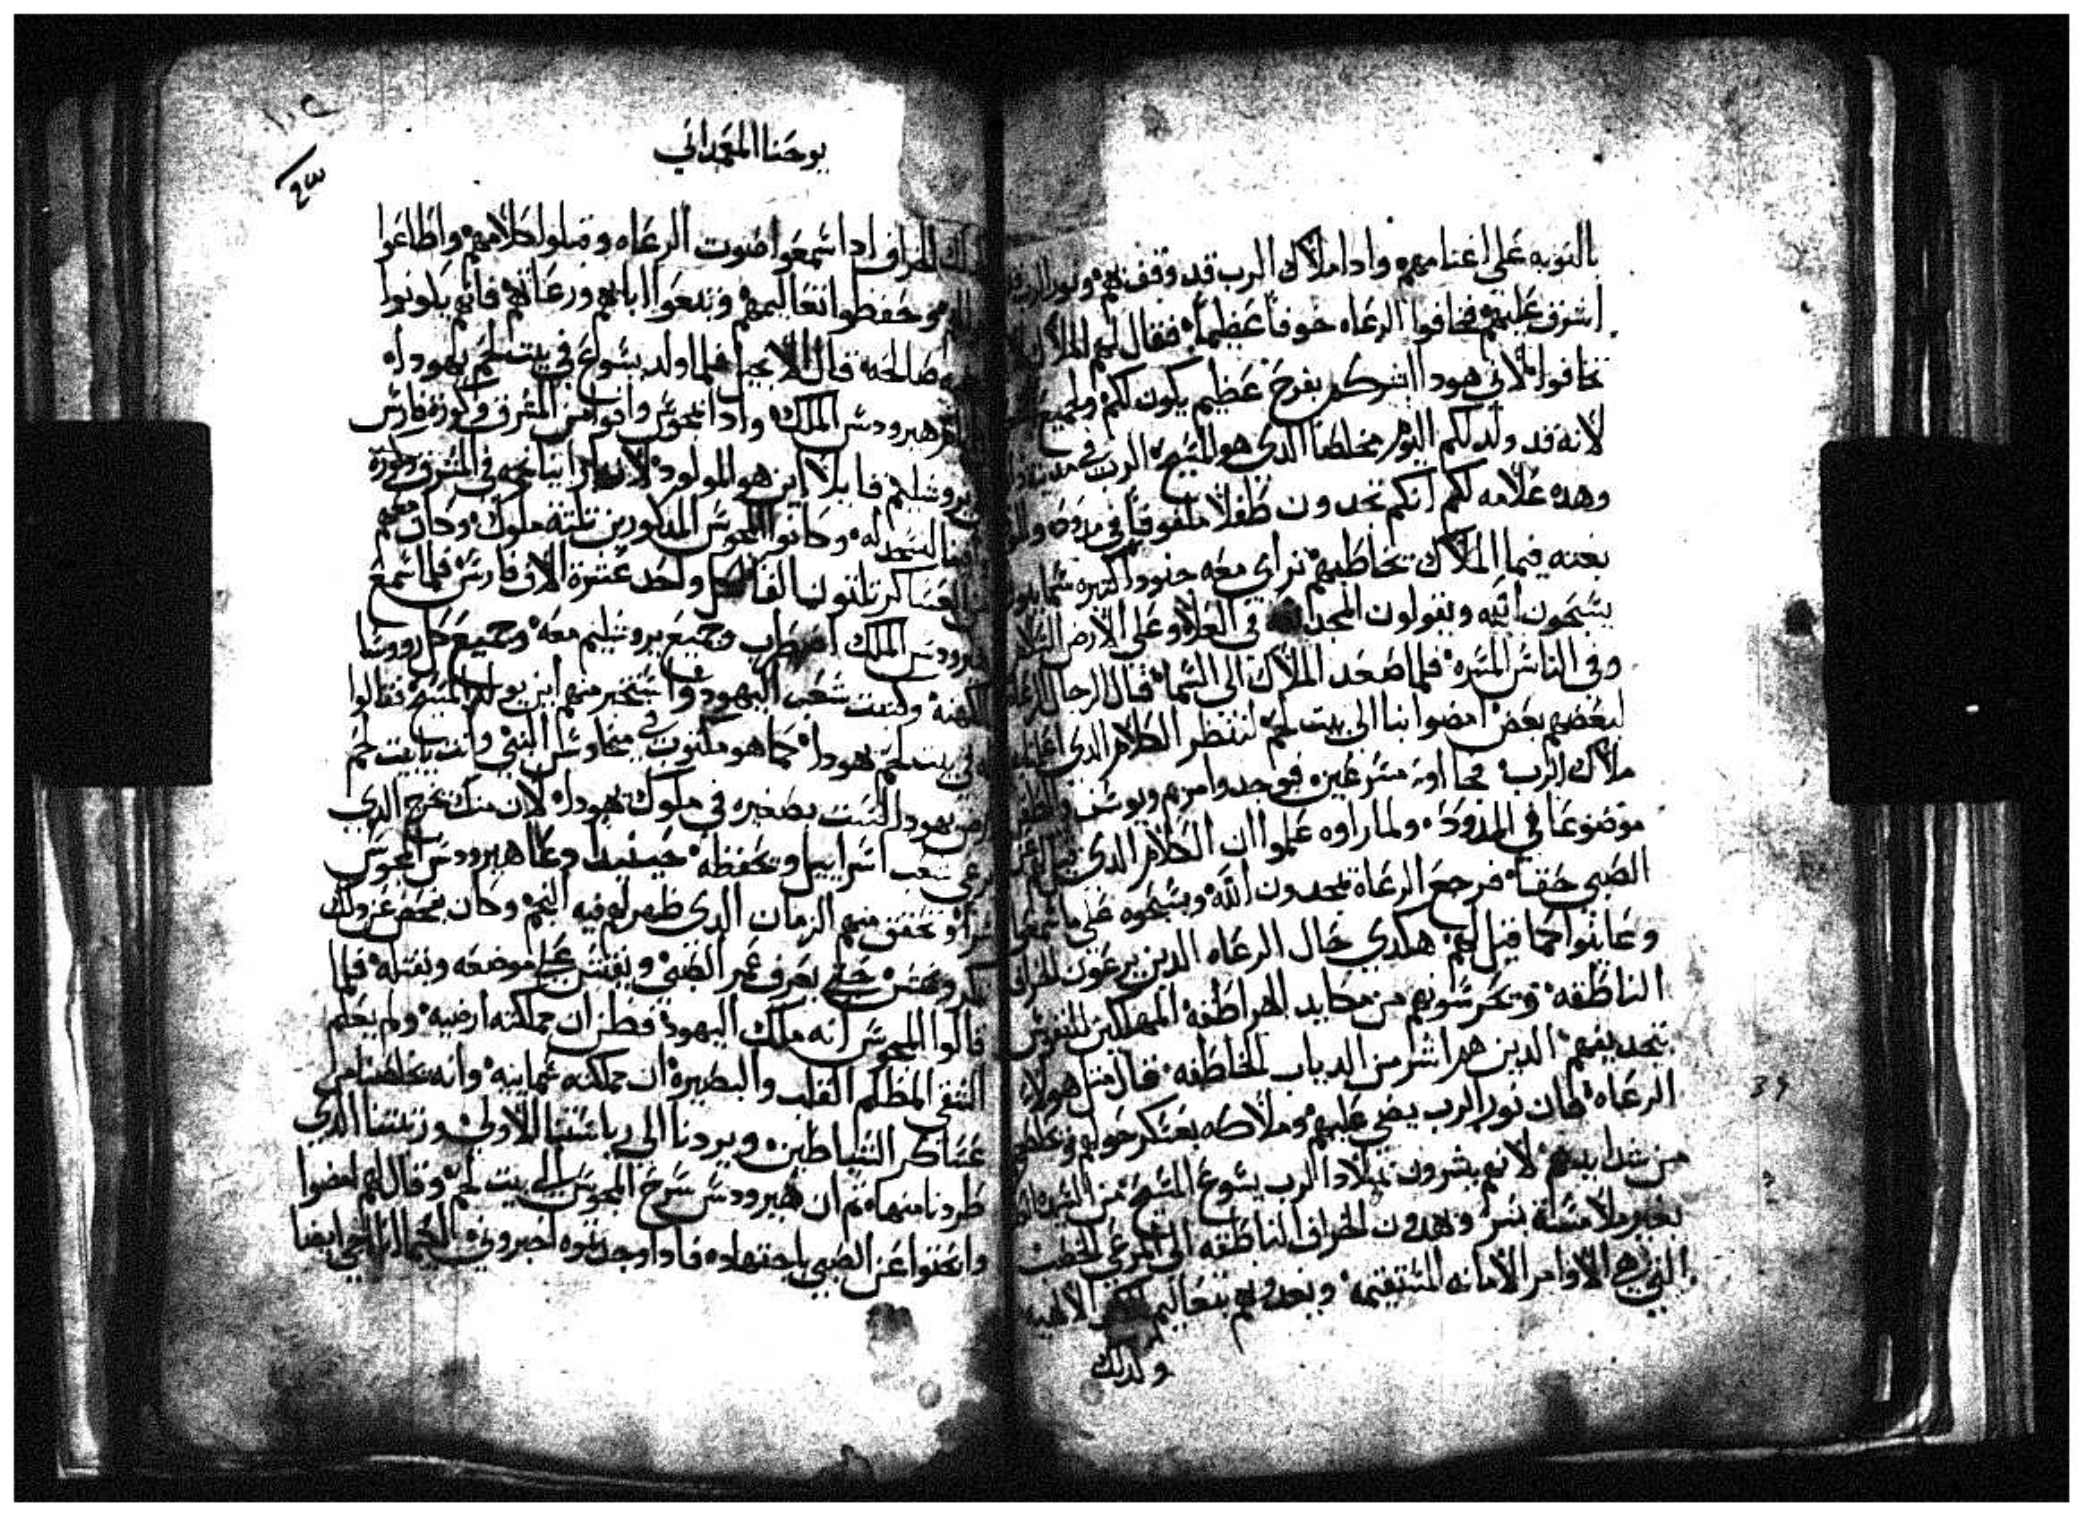 بالنوبه على اغنامهم واذا ملاك الرب قد وقف بهم ونور الرب
اشرق عليهم فخافوا الرعاه خوفاً عظيماً فقال لهم الملاك لا
تخافوا لانى هودا ابشركم بفرح عظيم يكون لكم ولجميع
لانه قد ولد لكم اليوم مخلصاً الدى هو المسيح الرب فى مدينة
وهده علامه لكم انكم تجدون طفلاً ملفوفاً فى مدود
بغته فيما الملاك يخاطبهم تراى معه جنوداً كثيره سماييون
يسبحون الله ويقولون المجد لله فى العلا وعلى الارض السلام
وفى الناس المسره فلما صعد الملاك الى السما قال الرجال الرعاه
لبعضهم بعض امضوا بنا الى بيت لحم لننظر الكلام الدى اعلنه
ملاك الرب فجاا اوه مسرعين فوجدوا مريم ويوسف والطفل
موضوعاً فى المدود ولما راوه علموا ان الكلام الدى قيل عن
الصبى حقاً فرجع الرعاة يمجدون الله ويسبحوه على ما سمعوا
وعاينوا كما قيل لهم هكدى حال الرعاه الدين يرعون الخراف
الناطقه ويحرسونهم من مكايد الهراطقه المهلكين النفوس
بتجديفهم الدين هم اشر من الدياب الخاطفه فال مثل هولاء
الرعاه كان نور الرب يضى عليهم وملاكه يعسكر حولهم
من شدايدهم لانهم بشرون بميلاد الرب يسوع المسيح من
بغير ملامسة بشر ويهدون الخراف الناطقه الى المرعى الخصب
التى هى الاوامر الامانه المستقيمه ويغدونهم بتعاليم الالهيه
ولدلك
يوحنا المعمدانى
٤٣
الخراف ادا سمعوا صوت الرعاه وقبلوا كلامهم واطاعوا
وحفظوا تعاليمهم وتبعوا اباهم ورعاتهم فانهم يكونوا
صالحه قال الانجيل فلما ولد يسوع فى بيت لحم يهودا
هيرودس الملك وادا مجوس وافوا من المشرق وكورة فارس
يروشليم قايلا اين هو المولود لاننا راينا نجمه فى المشرق
لنسجد له وكانوا المجوس المدكورين تلتة ملوك وكان معهم
العساكر تلتون الفاً واحد عشرة الاف فارس فلما سمع
هيرودس الملك اضطرب وجميع يروشليم معه وجميع كل رووسا
الكهنة وكتبت شعب اليهود واستخبر منهم اين يولد المسيح فقالوا
فى بيت لحم يهودا كما هو مكتوب فى ميخاوس النبى وانت يا بيت لحم
من يهودا لست بصغيره فى ملوك يهودا لان منك يخرج الدى
يرعى شعب اسراييل ويحفظه حينيداً دعا هيرودس المجوس
سراً وتحقق منهم الزمان الدى ظهر لهم فيه النجم وكان يفحص عن دلك
بمكر وغش حتى يعرف عمر الصبى ويفتش على موضعه ويقتله فلما
قالوا المجوس انه ملك اليهود فظن ان مملكته ارضيه ولم يعلم
الشقى المظلم القلب والبصيره ان مملكته سماييه وانه يخلصنا من
عساكر الشياطين ويردنا الى رياستنا الاولى ورتبتنا الدى
طردنا منها تم ان هيرودس سرح المجوس الى بيت لحم وقال لهم امضوا
وابحتوا عن الصبى باجتهاد فادا وجدتوه اخبرونى